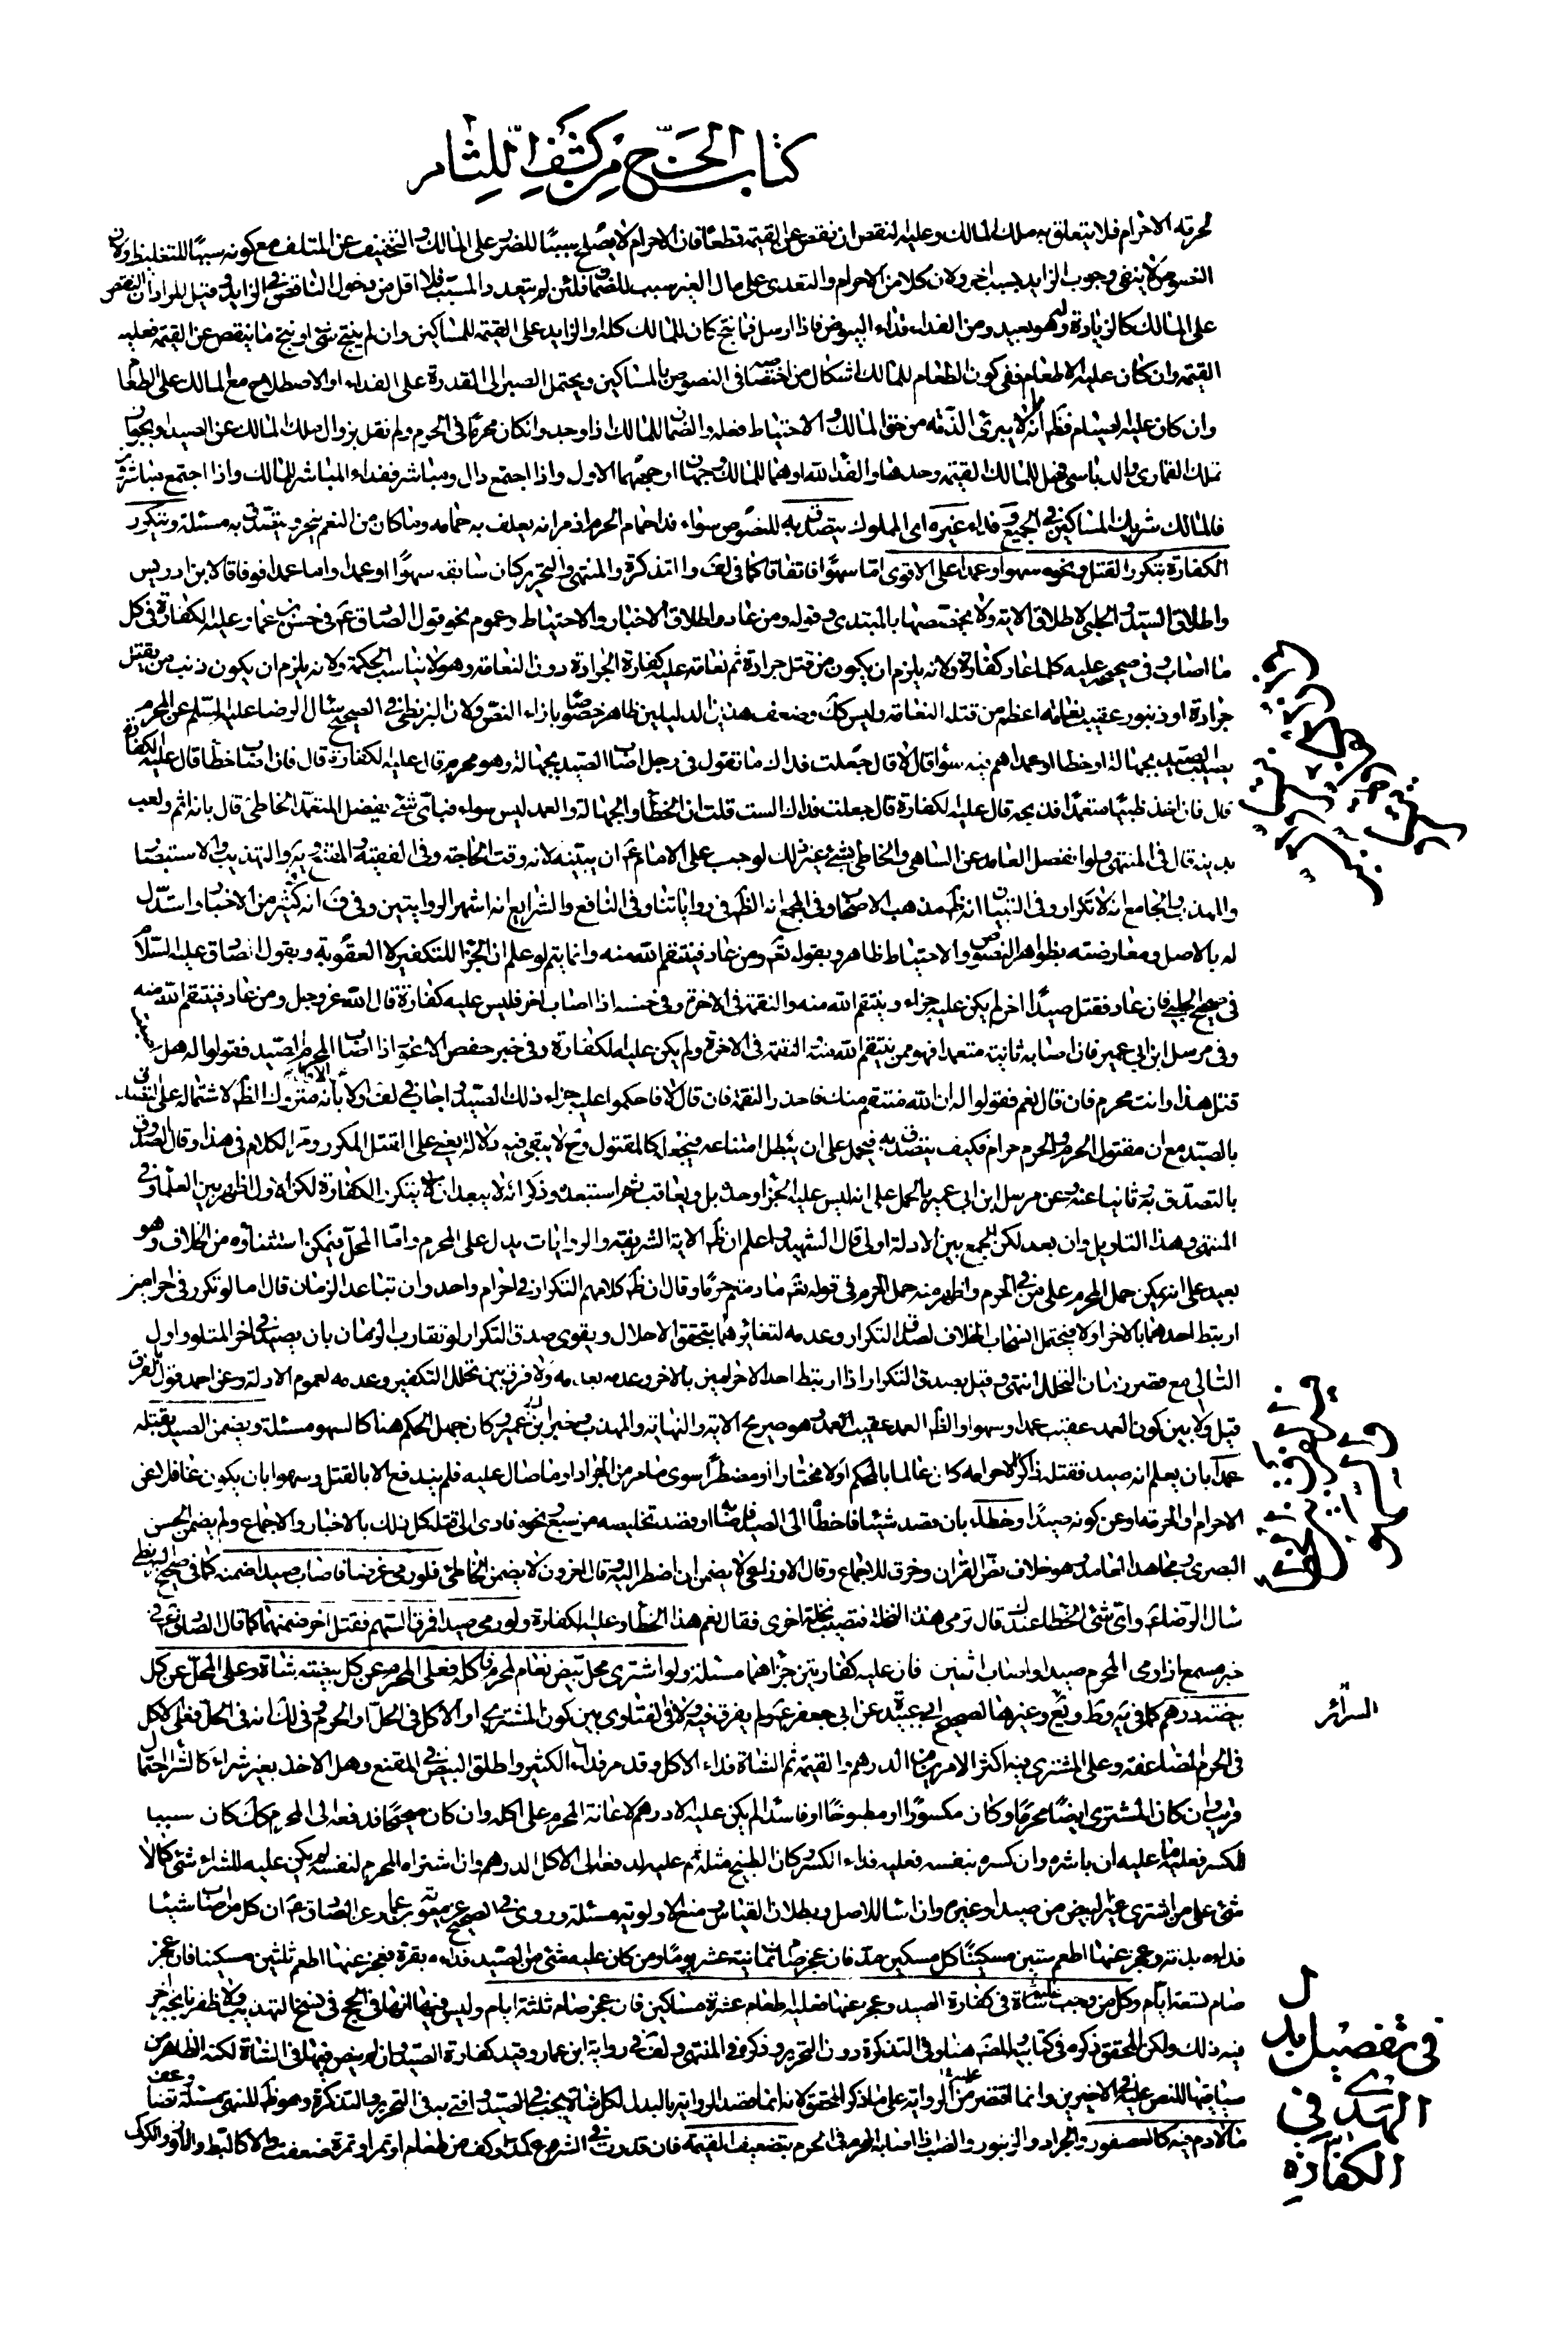 كتاب الحج من كشف اللثام
لحرمة الاحرام فلا يتعلق به ملك المالك وعليه النقص ان نقص عن القيمة قطعا فان الاحرام لا يصلح سببا للضرر على المالك والتخفيف عن المتلف مع كونه سببا للتغليظ ولان
النصوص لا ينفي وجوب الزايد بسبب اخر ولان كلا من الاحرام والتعدى على مال الغير سبب للضمان فلئن لم يتعدد المسبب فلا اقل من دخول الناقص فى الزايد وقيل المراد ان النقص
على المالك كالزيادة وله وهو بعيد ومن الفداء فداء البيوض فاذا ارسل فما نتج كان للمالك كله او الزايد على القيمة للمساكين وان لم ينتج شئ او نتج ما ينقص عن القيمة فعليه
القيمة وان كان عليه الاطعام ففى كون الطعام للمالك اشكال من اختصاصه فى النصوص بالمساكين ويحتمل الصبر الى المقدرة على الفداء او الاصطلاح مع المالك على الطعام
وان كان عليه الصيام فظ انه لا يبرئ الذمة من حق المالك والاحتياط فعله والضمان للمالك اذا وجد وان كان محرما فى الحرم ولم نقل بزوال ملك المالك عن الصيد وبجواز
تملك القمارى والدباسى فهل للمالك القيمة وحدها والفداء لله او هما للمالك وجهان اوجههما الاول واذا اجتمع دال ومباشر ففداء المباشر للمالك واذا اجتمع مباشرون
فالمالك شريك المساكين فى الجميع وفداء غيره اى المملوك يتصدق به للنصوص سواء فداء حمام الحرم اذ مر انه يعلف به حمامه وما كان من النعم ينحر ويتصدق به مسئلة وتتكرر
الكفارة بتكرر القتل ونحوه سهوا وعمدا على الاقوى اما سهوا فاتفاقا كما فى لف والتذكرة والمنتهى والتحرير كان سابقه سهوا او عمدا واما عمدا فوفاقا لابن ادريس
واطلاق السيد والحلبى لاطلاق الاية ولا يخصصها بالمبتدى قوله ومن عاد واطلاق الاخبار والاحتياط وعموم نحو قول الصادق ع فى حسن بن عمار وعليه الكفارة فى كل
ما اصاب وفى صحيحه عليه كلما عاد كفارة ولانه يلزم ان يكون من قتل جرادة ثم نعامة عليه كفارة الجرادة دون النعامة وهو لا يناسب الحكمة ولانه يلزم ان يكون ذنب من يقتل
جرادة او زنبور عقيب نعامة اعظم من قتله النعامة وليس كك وضعف هذين الدليلين ظاهر خصوصا بازاء النص ولان البزنطى فى الصحيح سئال الرضا عليه السلام عن المحرم
يصيب الصيد بجهالة او خطا او عمدا هم فيه سواء قال لا قال جعلت فداك ما تقول فى رجل اصاب الصيد بجهالة وهو محرم قال عليه الكفارة قال فان اصاب خطا قال عليه الكفارة
قال فان اخذ ظبيا متعمدا فذبحه قال عليه الكفارة قال جعلت فداك الست قلت ان الخطاء والجهالة والعمد ليس سواء فباى شئ يفضل المتعمد الخاطئ قال بانه اثم ولعب
بدينه قال فى المنتهى ولو انفصل العامد عن الساهى والخاطئ بشئ غير ذلك لوجب على الامام ع ان يبينه لانه وقت الحاجة وفى الفقيه والمقنع ويه والتهذيب والاستبصار
والمهذب والجامع انه لا تكرار وفى التبيان انه ظ مذهب الاصحاب وفى المجمع انه الظ فى رواياتنا وفى النافع والشرايع انه اشهر الروايتين وفى ف انه كثير من الاخبار واستدل
له بالاصل ومعارضته بظواهر النصوص والاحتياط ظاهر وبقوله تع ومن عاد فينتقم الله منه وانما يتم لو علم ان الجزاء للتكفير لا العقوبة وبقول الصادق عليه السلام
فى صحيح الحلبى فان عاد فقتل صيدا اخر لم يكن عليه جزاء وينتقم الله منه والنقمة فى الاخرة وفى حسنه اذا اصاب اخر فليس عليه كفارة قال الله عز وجل ومن عاد فينتقم الله منه
وفى مرسل ابن ابى عمير فان اصابه ثانية متعمدا فهو ممن ينتقم الله منه والنقمة فى الاخرة ولم يكن عليه الكفارة وفى خبر حفص الاعور اذا اصاب المحرم الصيد فقولوا له هل
قتل هذا وانت محرم فان قال نعم فقولوا له ان الله منتقم منك فاحذر النقمة فان قال لا فاحكموا عليه جزاء ذلك الصيد واجاب فى لف اولا بانه متروك الظ لاشتماله على التصدق
بالصيد مع ان مقتول المحرم والحرم حرام فكيف يتصدق به فيحمل على ان يبطل امتناعه فيجعل كالمقتول وح لا يبقى فيه دلالة يعنى على القتل المكرر ومر الكلام فى هذا وقال الصدوق
بالتصدق به وثانيا عنه وعن مرسل ابن ابى عمير بالحمل على انه ليس عليه الجزاء وحده بل ويعاقب ثم استبعده وذكر انه لا يبعد ان لا يتكرر الكفارة لكن الاول اظهر بين العلماء وفى
المنتهى وهذا التاويل وان بعد لكن الجمع بين الادلة اولى قال الشهيد واعلم ان ظ الاية الشريفة والروايات يدل على المحرم واما المحل فيمكن استثناؤه من الخلاف وهو
بعيد على انه يمكن حمل المحرم على من فى الحرم واظهر منه حمل الحرم فى قوله تع ما دمتم حرما وقال ان ظ كلامهم التكرار فى احرام واحد وان تباعد الزمان قال اما لو تكرر فى احرامين
ارتبط احدهما بالاخر او لا فيحتمل انسحاب الخلاف لصدق التكرار وعدمه لتغايرهما بتحقق الاحلال ويقوى صدق التكرار لو تقارب الزمان بان يصيد فى اخر المتلو واول
التالى مع قصر زمان التحلل انتهى وقيل بصدق التكرار اذا ارتبط احد الاحرامين بالاخر وعدمه بعدمه ولا فرق بين تخلل التكفير وعدمه لعموم الادلة وعن احمد قول بالفرق
قيل ولا بين كون العمد عقيب عمد او سهو او الظ العمد عقيب العمد وهو صريح الاية والنهاية والمهذب وخبر ابن ابى عمير وكان جهل الحكم هنا كالسهو مسئلة ويضمن الصيد بقتله
عمدا بان يعلم انه صيد فقتله ذاكرا لاحرامه كان عالما بالحكم او لا مختارا او مضطرا سوى ما مر من الجراد او ما صال عليه فلم يندفع الا بالقتل وسهوا بان يكون غافلا عن
الاحرام او الحرمة او عن كونه صيدا وخطاء بان قصد شيئا فاخطا الى الصيد فاصابه او قصد تخليصه من سبع ونحوه فادى الى قتله كل ذلك بالاخبار والاجماع ولم يضمن الحسن
البصرى ومجاهد العامد وهو خلاف نص القران وخرق للاجماع وقال الاوزاعى لا يضمن ان اضطر اليه وقال اخرون لا يضمن الخاطئ فلو رمى غرضا فاصاب صيدا ضمنه كما فى صحيح البزنطى
سئال الرضا ع واى شئ الخطا عندك قال ترمى هذه النخلة فتصيب نخلة اخرى فقال نعم هذا الخطا وعليه الكفارة ولو رمى صيدا فمرق السهم فقتل اخر ضمنهما كما قال الصادق ع فى
خبر مسمع اذا رمى المحرم صيدا واصاب اثنين فان عليه كفارتين جزاهما مسئلة ولو اشترى محل بيض نعام لمحرم فاكله فعلى المحرم عن كل بيضة شاة وعلى المحل عن كل
بيضة درهم كما فى يه وط ويع وغيرها لصحيح ابى عبيدة عن ابى جعفر ع ولم يفرق فيه ولا فى الفتاوى بين كون المشترى او الاكل فى الحل او الحرم وفى لك انه فى الحل فعلى الاكل
فى الحرم المضاعفة وعلى المشترى فيه اكثر الامرين من الدرهم والقيمة ثم الشاة فداء الاكل وقد مر فداء الكثير واطلق البيض فى المقنع وهل الاخذ بغير شراء كالشراء احتمال
قريب وان كان المشترى ايضا محرما وكان مكسورا او مطبوخا او فاسدا لم يكن عليه الا درهم لاعانة المحرم على اكله وان كان صحيحا فدفعه الى المحرم كك كان سببا
للكسر فعليه ما عليه ان باشره وان كسره بنفسه فعليه فداء الكسر وكان الطبخ مثله ثم عليه لدفعه الى الاكل الدرهم وان اشتراه المحرم لنفسه لم يكن عليه للشراء شئ كما لا
شئ على من اشترى غير البيض من صيد او غيره وان اساء للاصل وبطلان القياس ومنع الاولوية مسئلة وروى فى الصحيح عن معوية بن عمار عن الصادق ع ان كل من اصاب شيئا
فداؤه بدنة وعجز عنها اطعم ستين مسكينا كل مسكين مد فان عجز صام ثمانية عشر يوما ومن كان عليه شئ من الصيد فداؤه بقرة فعجز عنها اطعم ثلثين مسكينا فان عجز
صام تسعة ايام وكل من وجب عليه شاة فى كفارة الصيد وعجز عنها فعليه طعام عشرة مساكين فان عجز صام ثلثة ايام وليس فيها انها فى الحج فى نسخ التهذيب ولا ظفرنا بخبر اخر
فيه ذلك ولكن المحقق ذكره فى كتابيه والمص هنا وفى التذكرة دون التحرير وذكر فى المنتهى ولف فى رواية ابن عمار وقيد كفارة الصيد وان لم ينص فيها فى الشاة لكنه الظاهر من
سياقها للنص عليه فى الاخيرين وانما اقتصر من الرواية على ما ذكر المحقق لانه انما قصد الرواية بالبدل لكل شاة يجب فى الصيد وافتى به فى التحرير والتذكرة وهو ظ المنتهى مسئلة
ما لا دم فيه كالعصفور والجراد والزنبور والضب اذا اصابه المحرم فى الحرم بتضعيف القيمة فان قدرت فى الشرع كمد او كف من طعام او تمر او تمرة ضعفت والا كالبط والاوز والكركى
السرائر
فى تفصيل بدل
الهدى فى
الكفارة